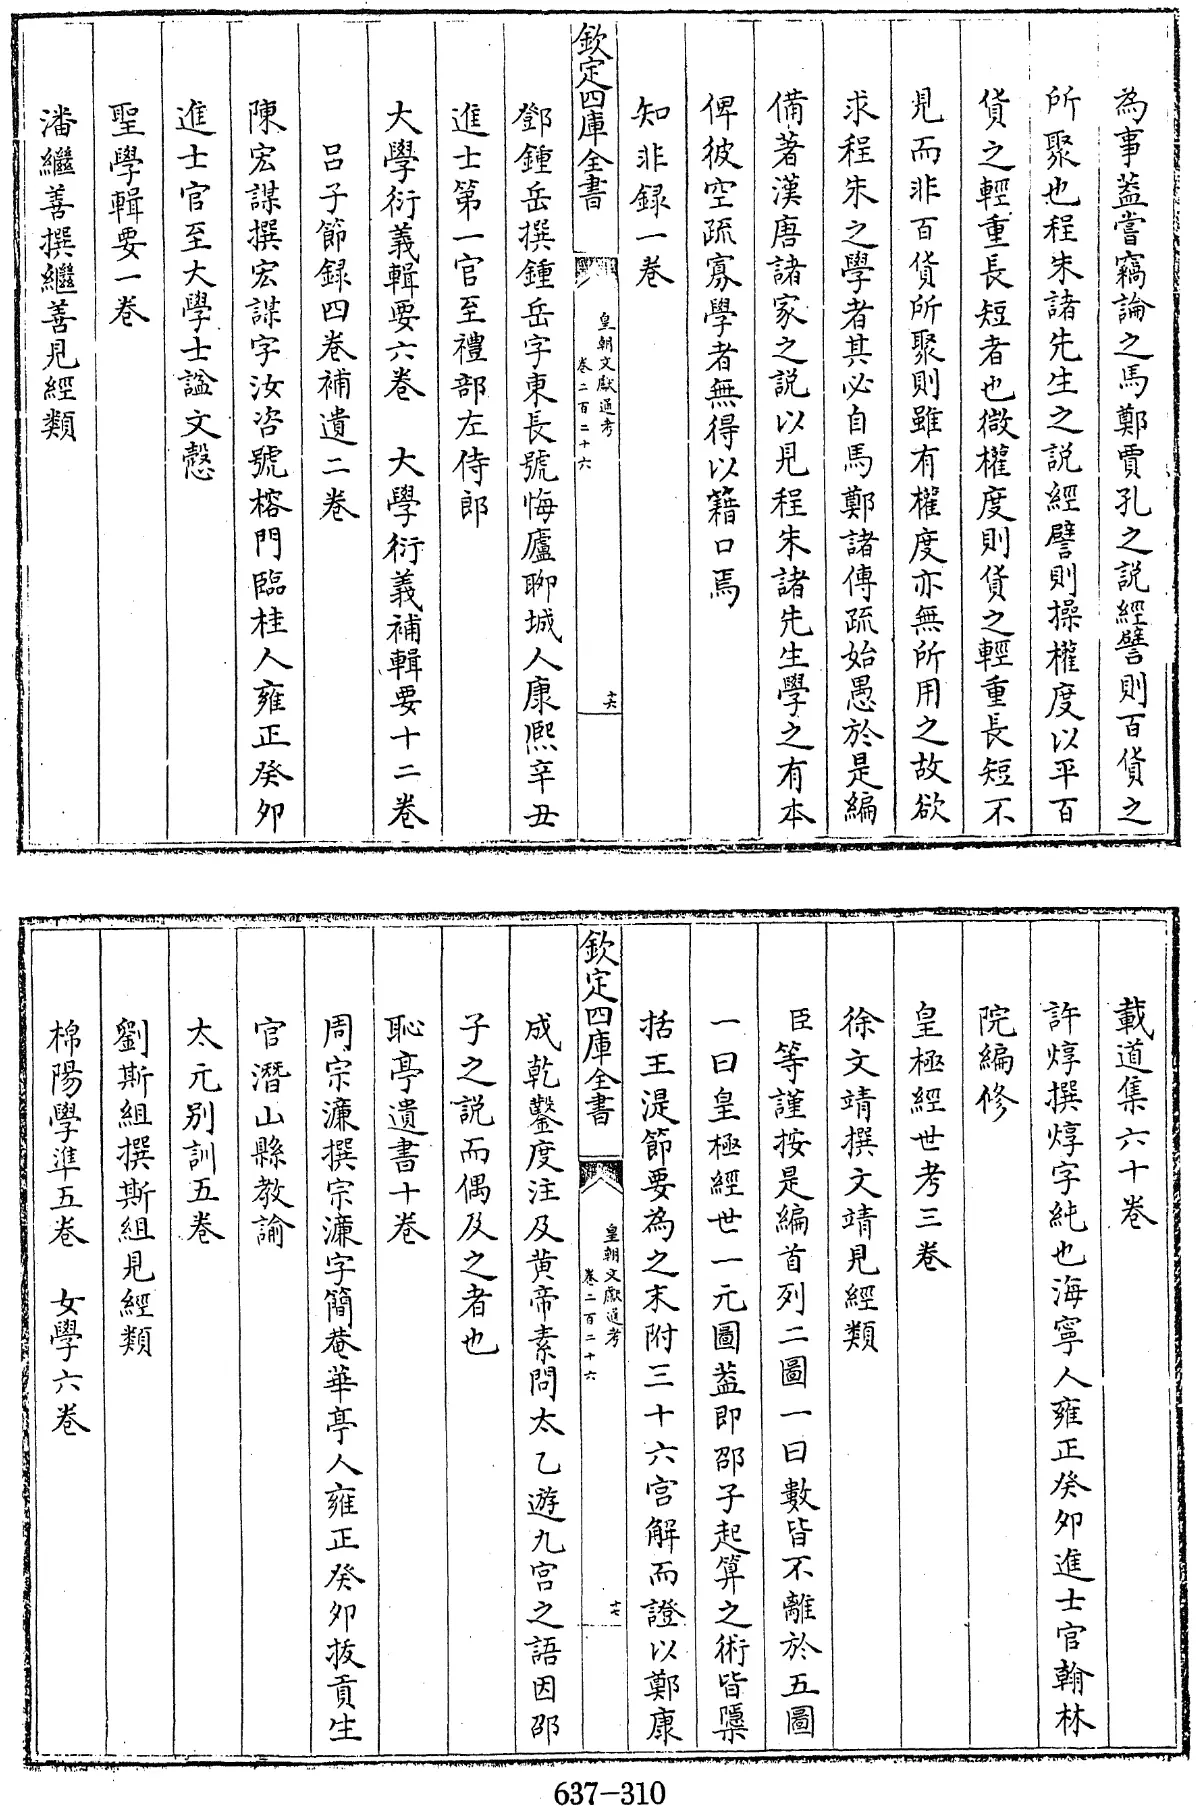 為事蓋嘗竊論之馬鄭賈孔之説經譬則百貨之
所聚也程朱諸先生之説經譬則操權度以平百
貨之輕重長短者也微權度則貨之輕重長短不
見而非百貨所聚則雖有權度亦無所用之故欲
求程朱之學者其必自馬鄭諸傳疏始愚於是編
備著漢唐諸家之説以見程朱諸先生學之有本
俾彼空疏寡學者無得以籍口焉
知非録一卷
欽定四庫全書
皇朝文獻通考
卷二百二十六
十六
鄧鍾岳撰鍾岳字東長號悔廬聊城人康熙辛丑
進士第一官至禮部左侍郎
大學衍義輯要六卷 大學衍義補輯要十二卷
吕子節録四卷補遺二卷
陳宏謀撰宏謀字汝咨號榕門臨桂人雍正癸卯
進士官至大學士諡文慤
聖學輯要一卷
潘繼善撰繼善見經類
載道集六十卷
許焞撰焞字純也海寧人雍正癸卯進士官翰林
院編修
皇極經世考三卷
徐文靖撰文靖見經類
臣等謹按是編首列二圖一曰數皆不離於五圖
一曰皇極經世一元圖蓋即邵子起算之術皆隱
括王湜節要為之末附三十六宫解而證以鄭康
欽定四庫全書
皇朝文獻通考
卷二百二十六
十七
成乾鑿度注及黄帝素問太乙遊九宫之語因邵
子之説而偶及之者也
恥亭遺書十卷
周宗濂撰宗濂字簡菴華亭人雍正癸卯拔貢生
官潛山縣教諭
太元别訓五卷
劉斯組撰斯組見經類
棉陽學準五卷 女學六卷
637-310